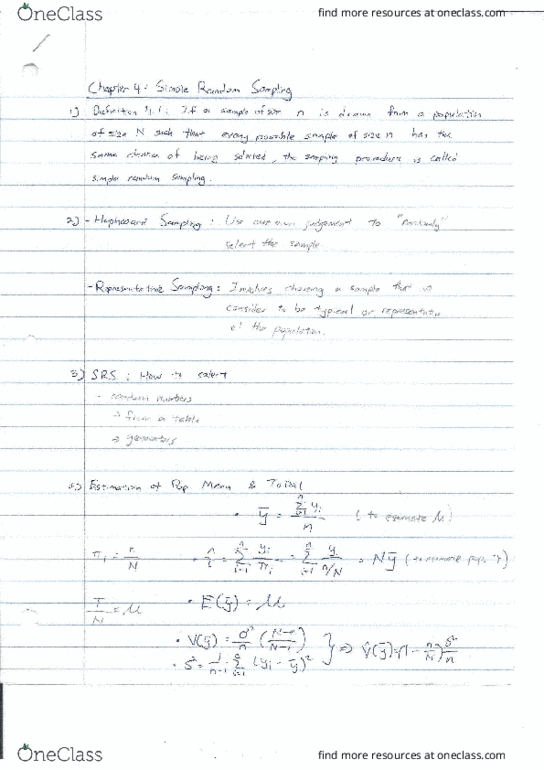 OneClass
find more resources at oneclass.com
Chapter 4: Simple Random Sampling
1) Definition 4.1: If a sample of size n is drawn from a population
of size N such that every possible sample of size n has the
same chance of being selected, the sampling procedure is called
simple random sampling.
2) - Haphazard Sampling: Use our own judgement to "Randomly"
select the sample.
- Representative Sampling: Involves choosing a sample that is
consider to be typical or representative
of the population.
3) SRS: How to select
- random numbers
→ from a table
→ generators
Estimation of Pop. Mean & Total
• ȳ = Σⁿᵢ₌₁ yᵢ / n (to estimate μ)
πᵢ = n/N • τ̂ = Σⁿᵢ₌₁ yᵢ/πᵢ = Σⁿᵢ₌₁ yᵢ/(n/N) = Nȳ (to estimate pop. τ)
τ/N = μ • E(ȳ) = μ
• V(ȳ) = σ²/n (N-n/N-1)
• s² = 1/(n-1) Σⁿᵢ₌₁ (yᵢ - ȳ)² } ⇒ V̂(ȳ) = (1 - n/N) s²/n
OneClass
find more resources at oneclass.com